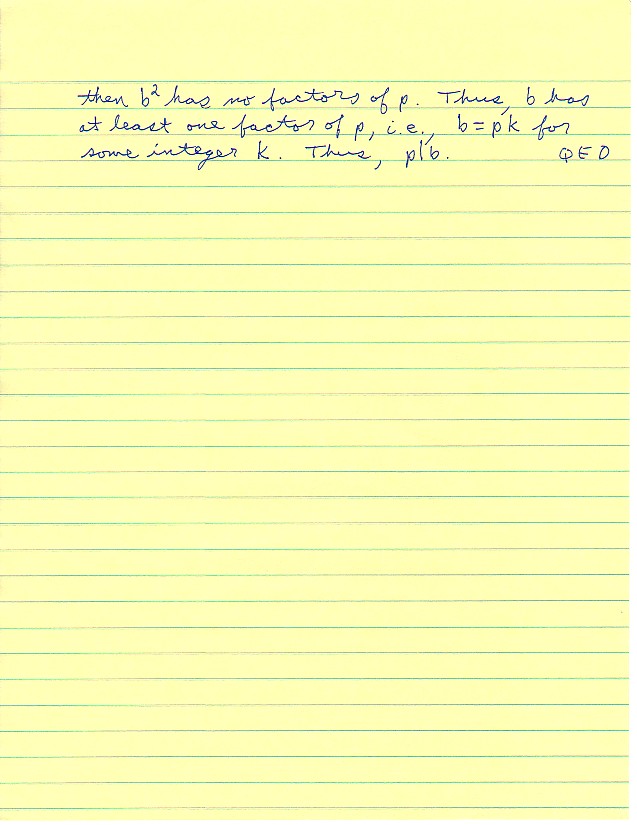 then b² has no factors of p. Thus, b has
at least one factor of p, i.e., b = pk for
some integer k. Thus, p|b. QED